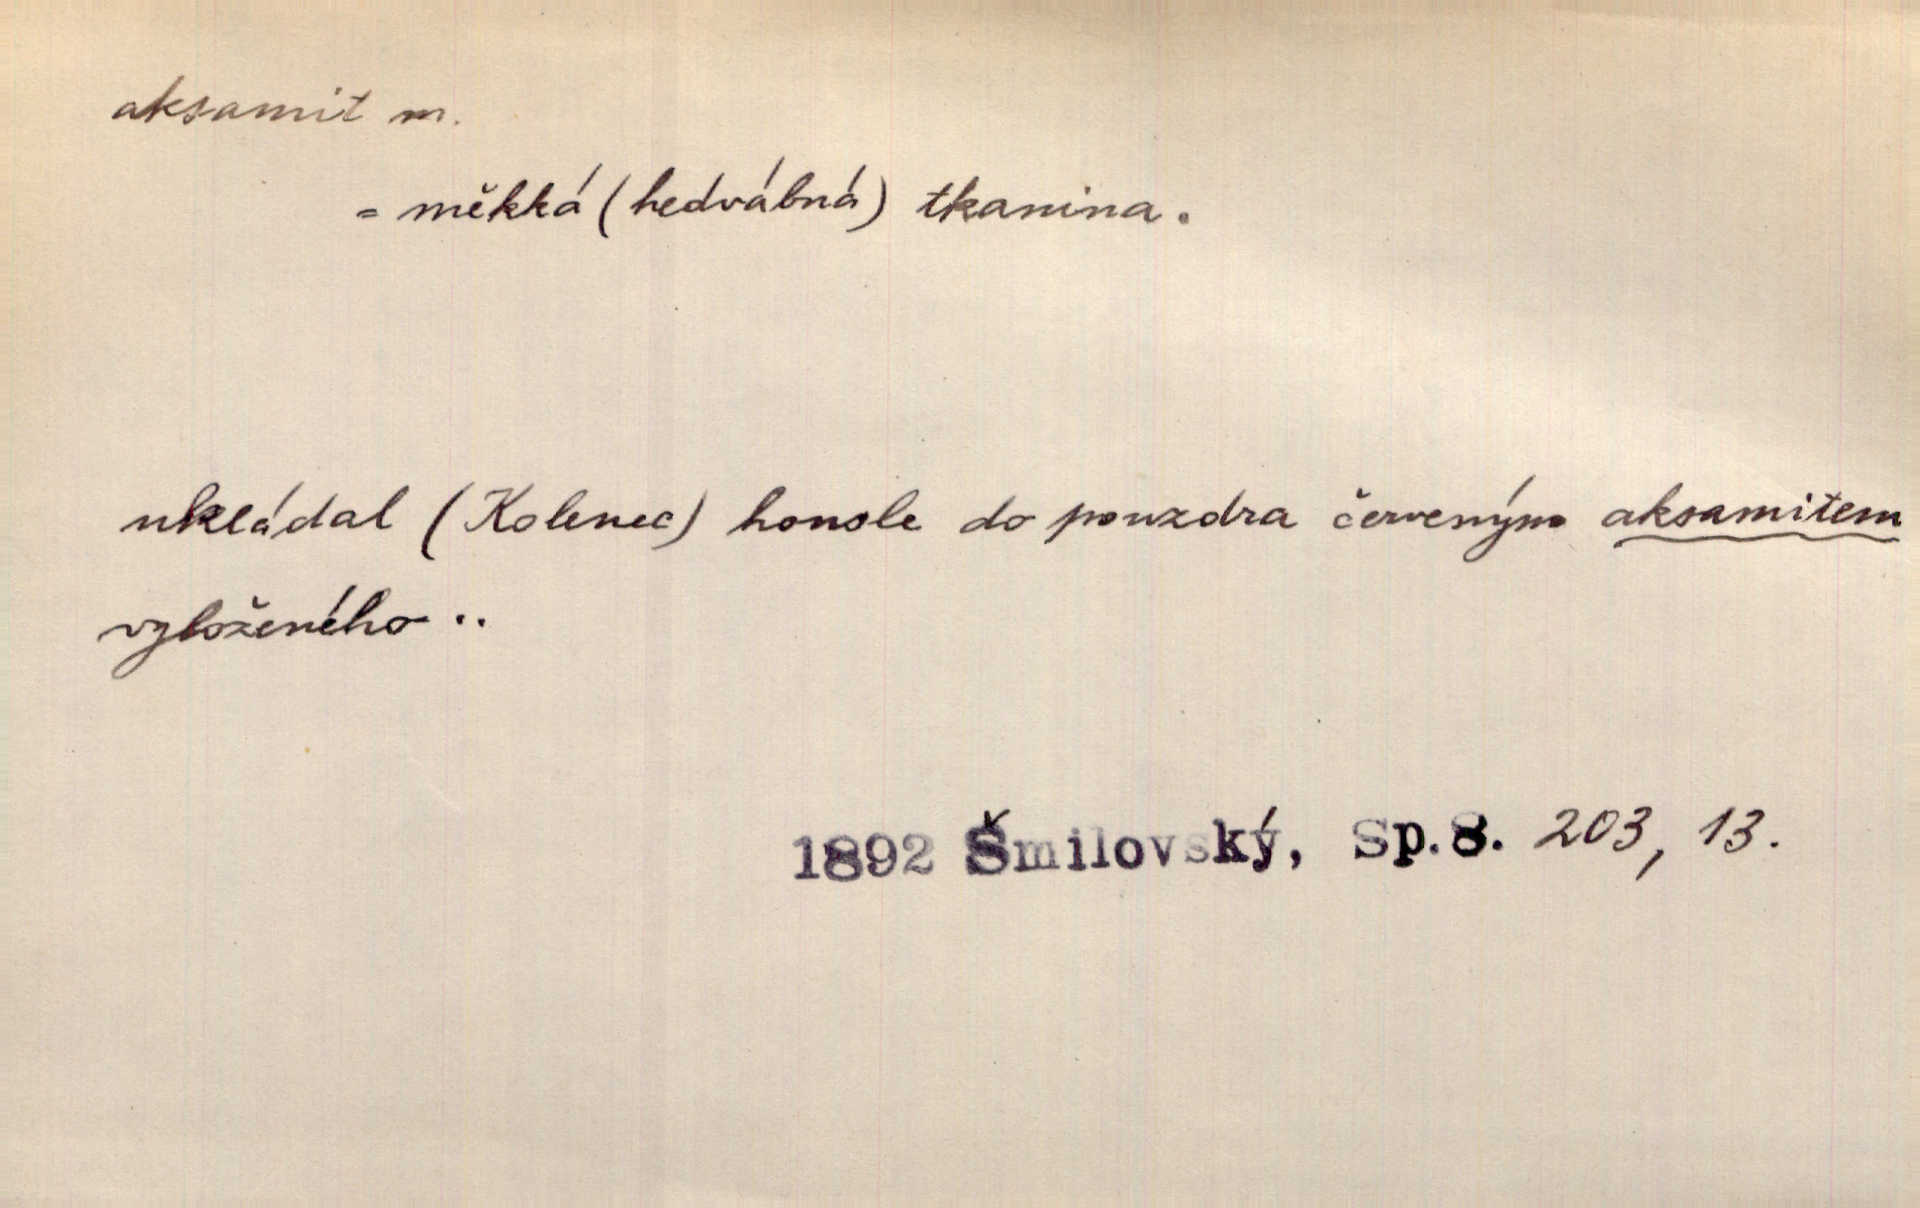 aksamit m.
= měkká (hedvábná) tkanina.
ukládal (Kolenec) housle do pouzdra červeným aksamitem
vyloženého ..
1892 Šmilovský, Sp. 8. 203, 13.